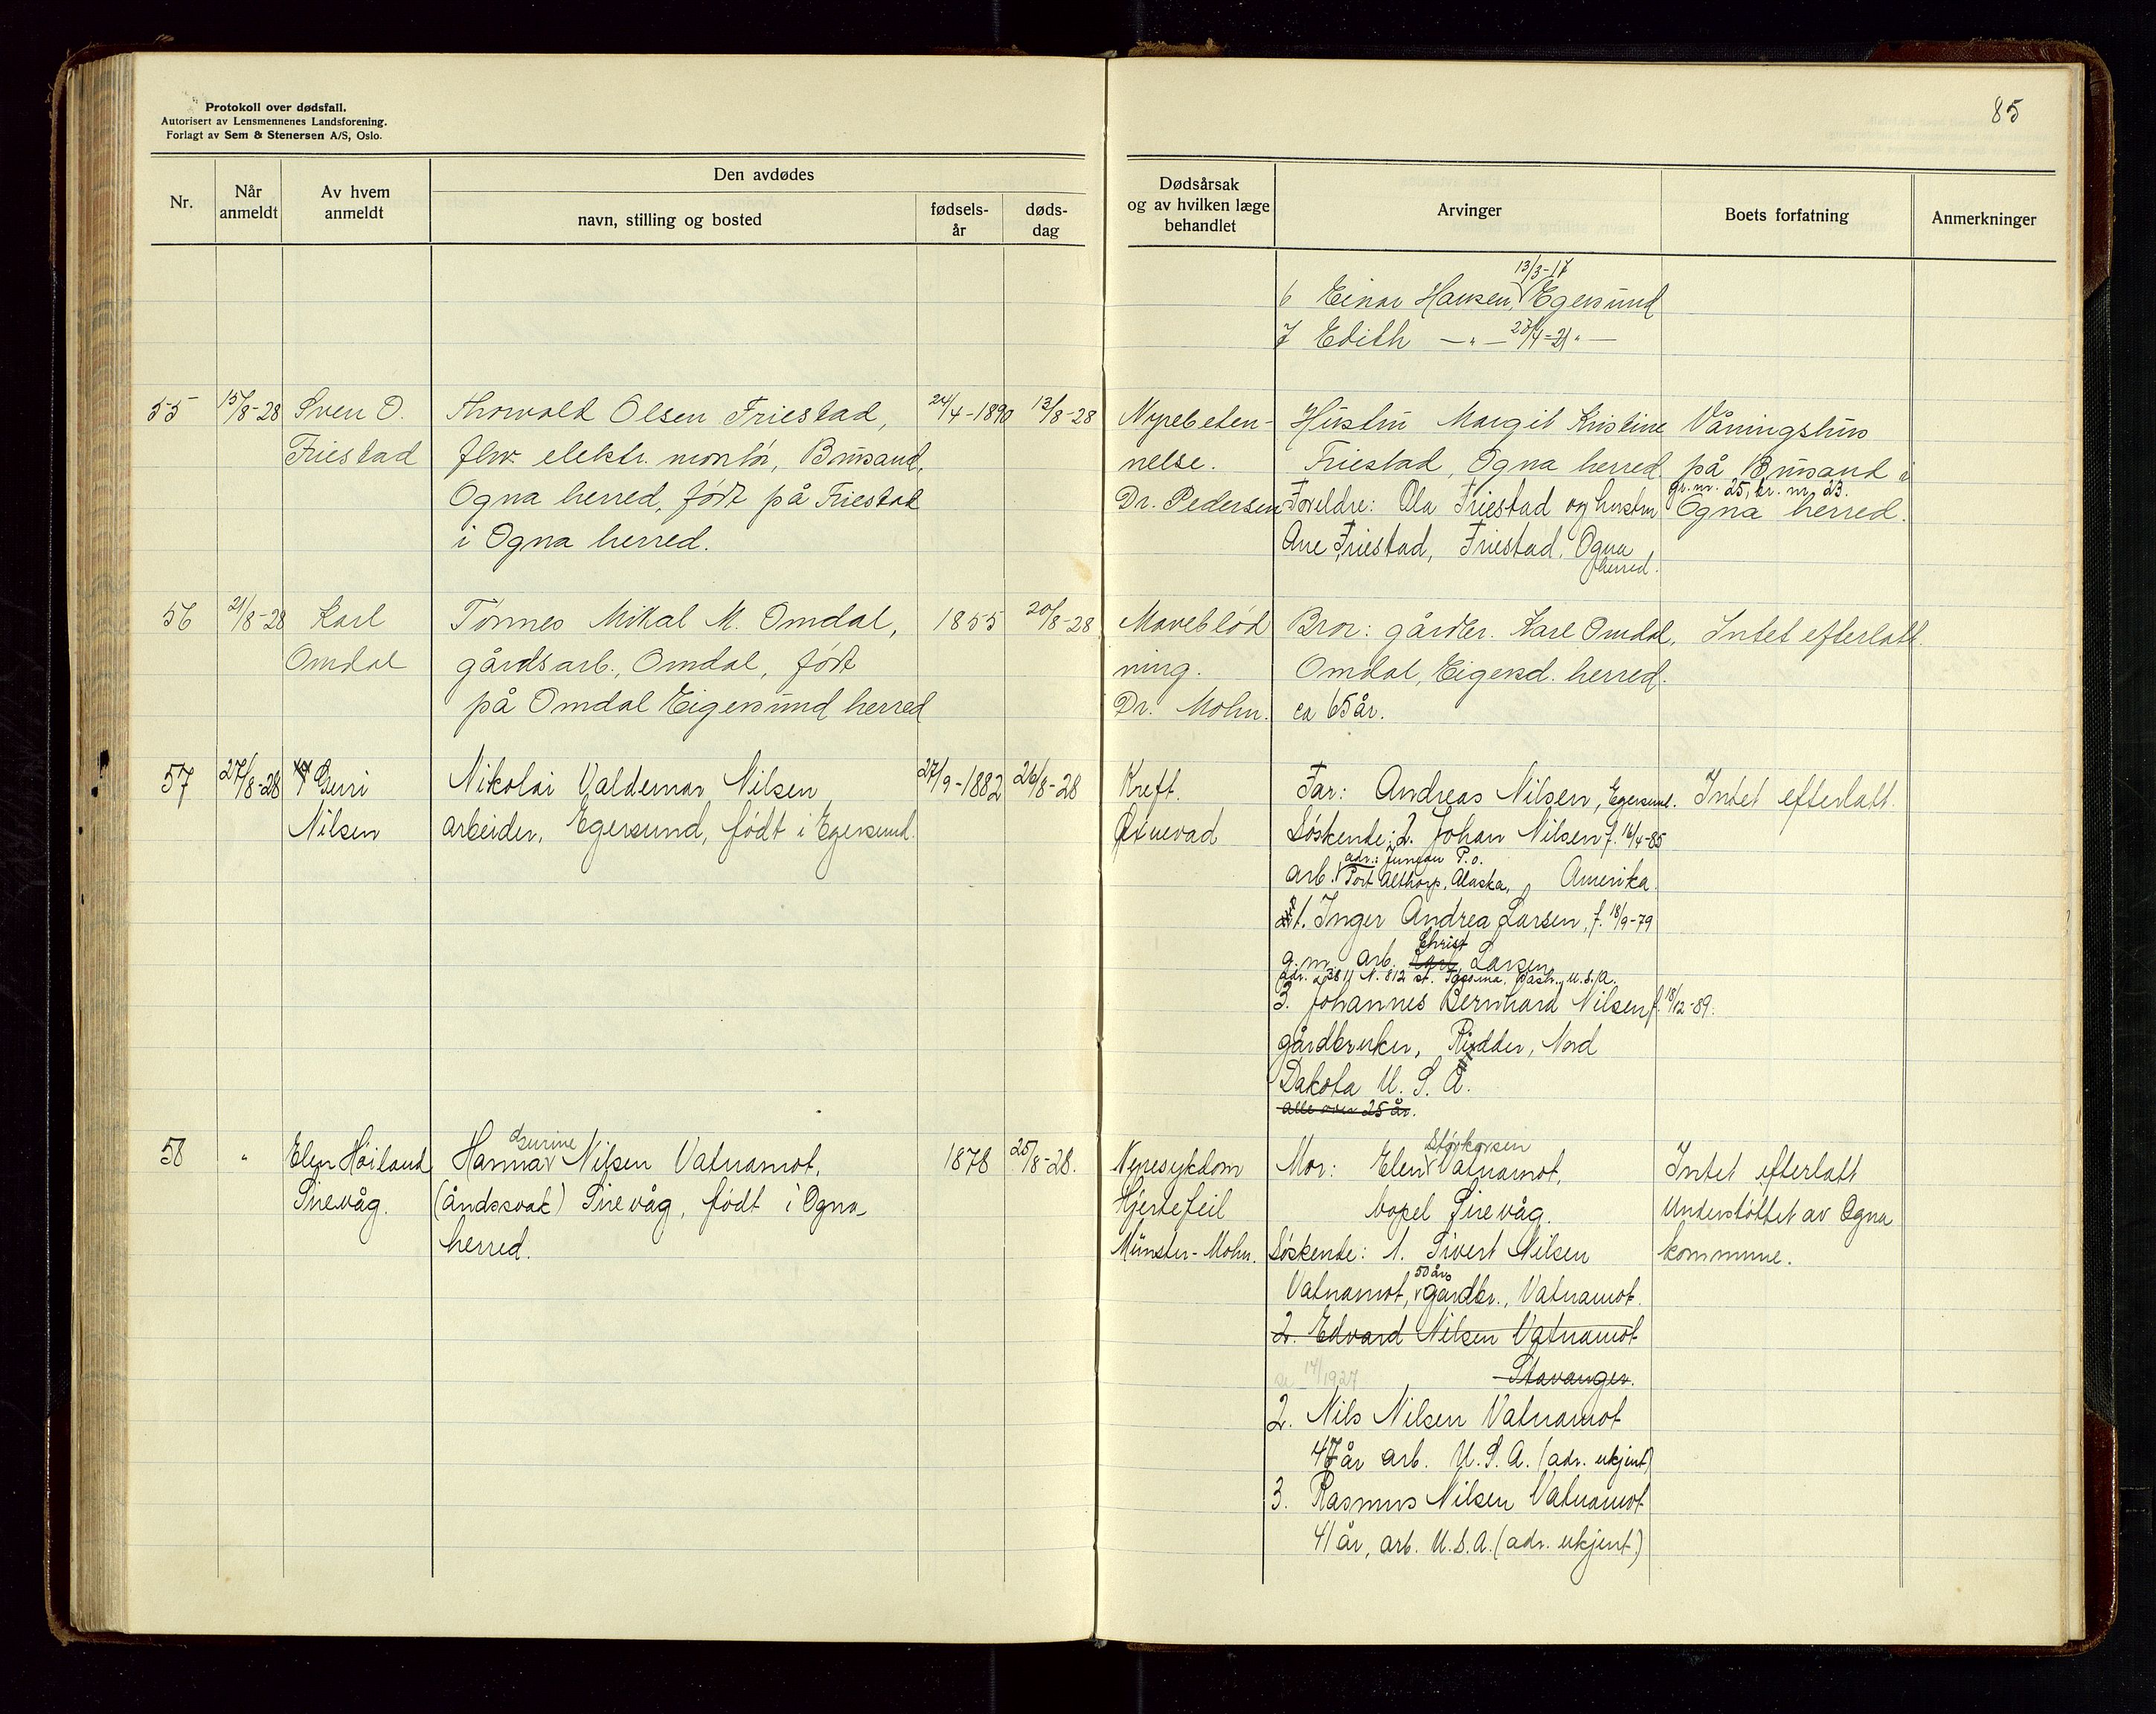 Protokoll over dødsfall.
Autorisert av Lensmennenes Landsforening.
Forlagt av Sem & Stenersen A/S, Oslo.
85
Nr.
Når anmeldt
Av hvem anmeldt
Den avdødes
navn, stilling og bosted
fødsels-år
døds-dag
Dødsårsak og av hvilken læge behandlet
Arvinger
Boets forfatning
Anmerkninger
13/3-17
6 Einar Hansen, Egersund
7 Edith —"— 23/4-21 "—
55
15/8-28
Sven O.
Friestad
Thorvald Olsen Friestad,
fhv. elektr. montør, Brusand,
Ogna herred, født på Friestad
i Ogna herred.
24/4-1890
13/8-28
Nyrebeten-
nelse.
Dr. Pedersen
Hustru Margit Kristine
Friestad, Ogna herred.
Foreldre: Ola Friestad og hustru
Ane Friestad, Friestad, Ogna
herred.
Våningshus
på Brusand i
gr. nr. 25, br. nr. 23.
Ogna herred.
56
21/8-28
Karl
Omdal
Tønnes Mikal M. Omdal,
gårdsarb., Omdal, født
på Omdal Eigersund herred
1855
20/8-28
Maveblød
ning.
Dr. Mohn.
Bror: gårdbr. Karl Omdal,
Omdal, Eigersd. herred.
ca 65 år.
Intet efterlatt.
57
27/8-28
Guri
Nilsen
Nikolai Valdemar Nilsen
arbeider, Egersund, født i Egersund.
27/9-1882
26/8-28
Kreft.
Far: Andreas Nilsen, Egersund.
Søskende: 2. Johan Nilsen f. 16/4-85
adr.: Juneau P.o.
arb. Port Althorp, Alaska, Amerika.
1. Inger Andrea Larsen, f. 18/9-79
Christ
g.m. arb. Larsen
adr. 3811 N. 812 st. Tacoma, Wash., U.S.A.
3. Johannes Bernhard Nilsen f. 18/12-89.
gårdbruker, Rudder, Nord
Dakota U. S. A.
alle over 25 år.
Intet efterlatt.
58
"
Elen Høiland
Sirevåg.
Gurine
Hanna Nilsen Vatnamot,
(åndssvak) Sirevåg, født i Ogna
herred.
1878
25/8-28.
Nyresykdom
Hjertefeil
Münster-Mohn.
Størkorsen
Mor: Elen Vatnamot,
bopel Sirevåg.
Søskende: 1. Sivert Nilsen
50 år,
Vatnamot, gårdbr., Vatnamot.
2. Edvard Nilsen Vatnamot
Stavanger.
2. Nils Nilsen Vatnamot
47 år arb. U. S. A. (adr. ukjent)
3. Rasmus Nilsen Vatnamot
41 år, arb. U.S.A. (adr. ukjent.)
Intet efterlatt
Understøttet av Ogna
kommune.